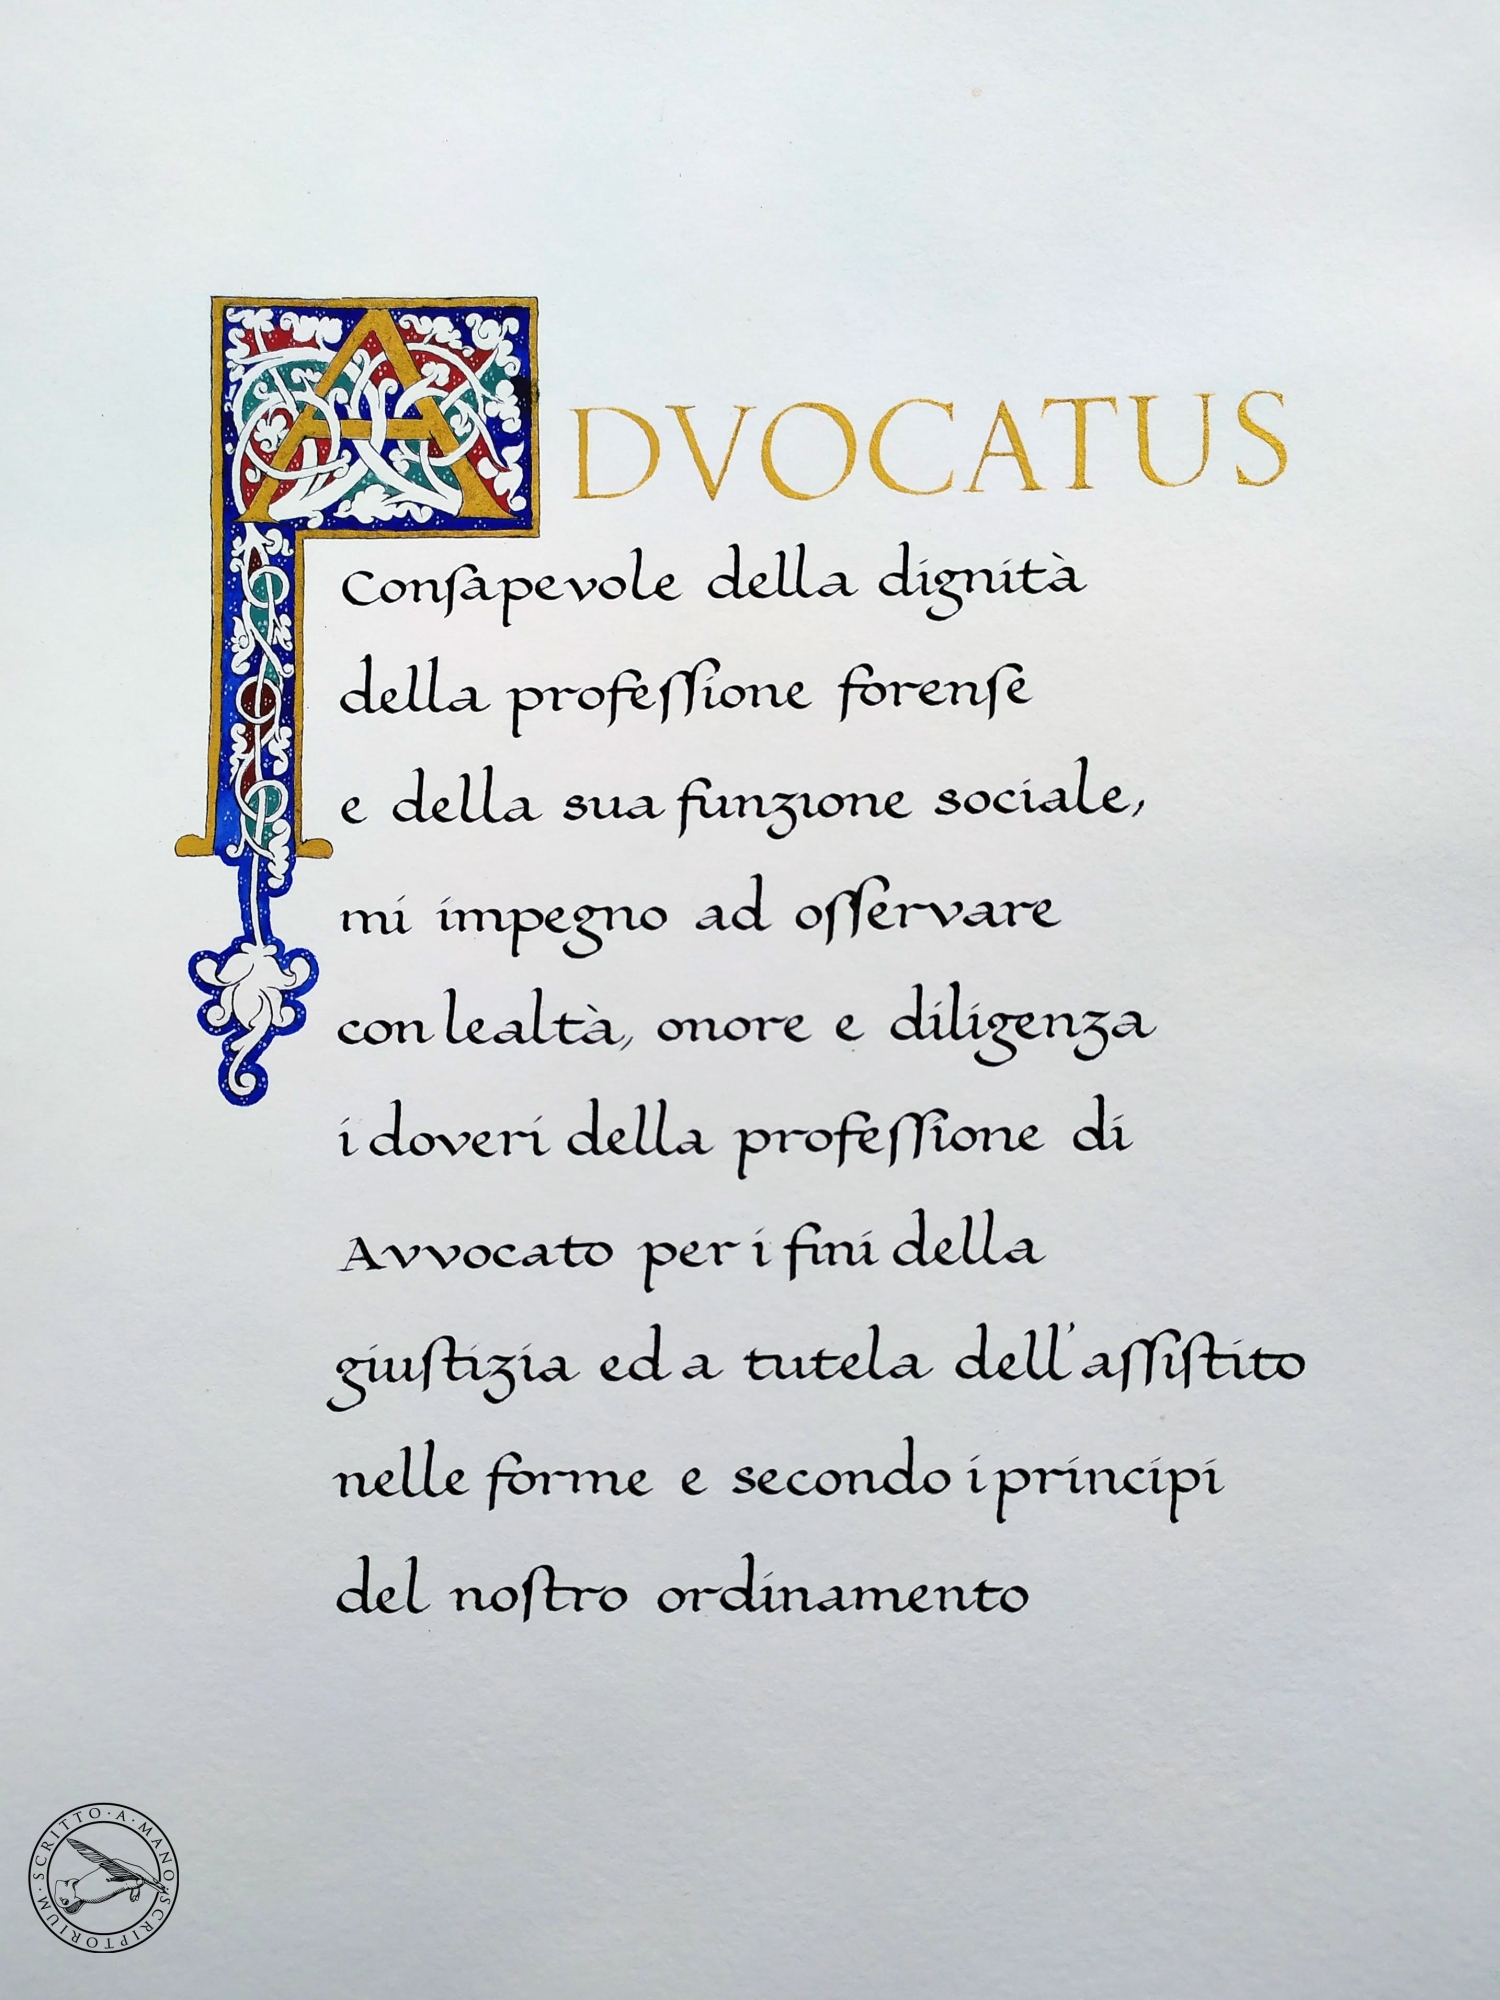 ADVOCATUS
Conſapevole della dignità
della profeſſione forenſe
e della sua funzıone sociale,
mi impegno ad oſſervare
con lealtà, onore e diligenza
i doveri della profeſſione di
Avvocato per i fini della
giuſtizia ed a tutela dell'aſſiſtito
nelle forme e secondo i principi
del noſtro ordinamento
SCRITTO · A · MANO · SCRIPTORIUM ·